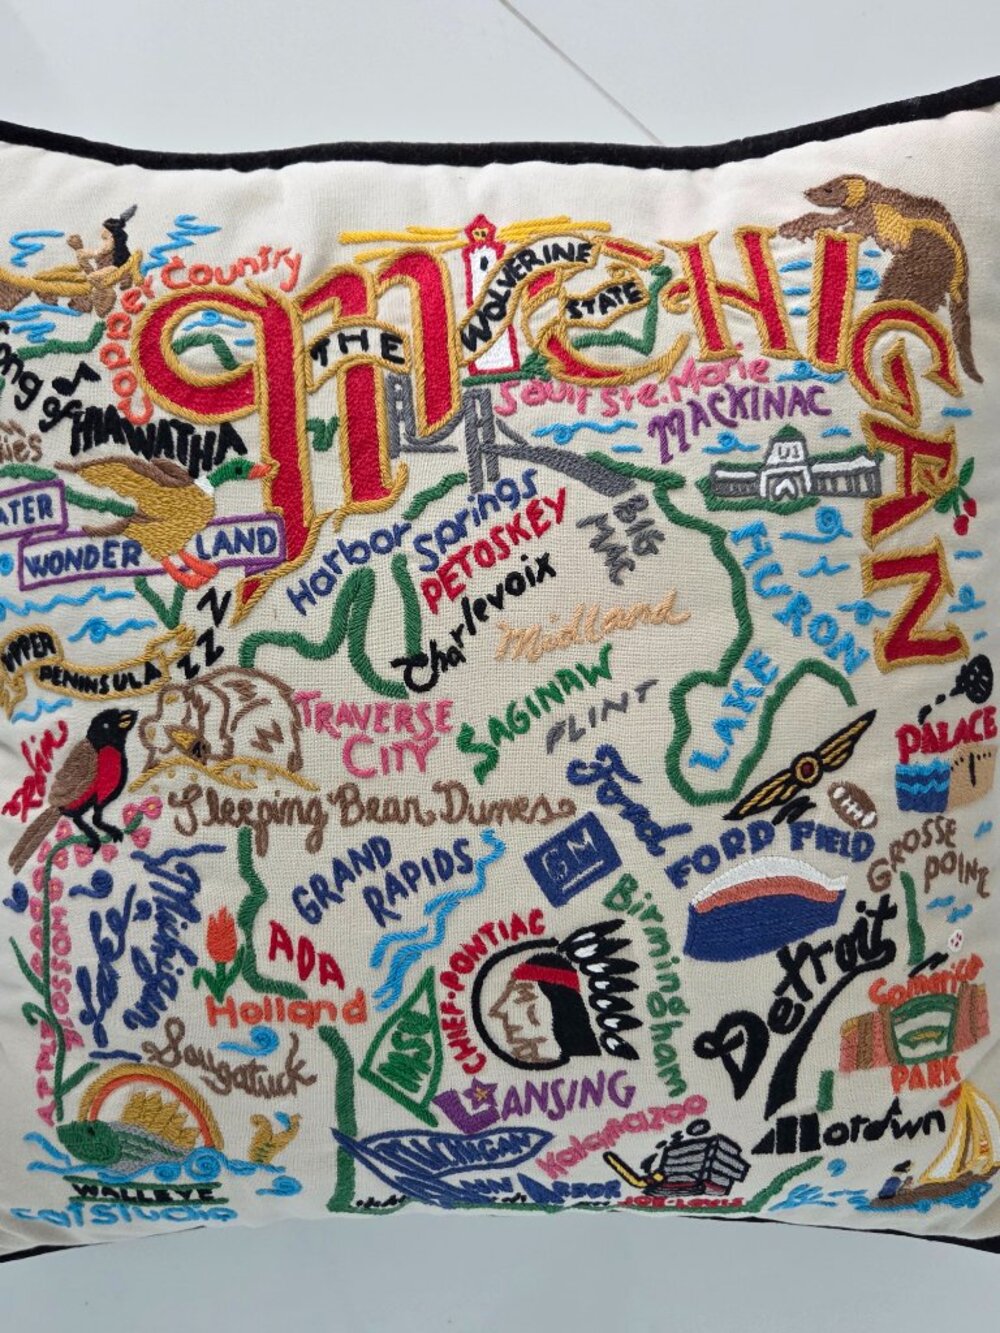 MICHIGAN
THE
WOLVERINE
STATE
Copper Country
Song of
HIAWATHA
Sault Ste. Marie
MACKINAC
WATER
WONDER
LAND
Harbor
Springs
PETOSKEY
Charlevoix
BIG
MAC
LAKE
HURON
Midland
UPPER
PENINSULA
Robin
TRAVERSE
CITY
SAGINAW
FLINT
PALACE
Sleeping Bear Dunes
Ford
FORD FIELD
GM
GROSSE
POINTE
GRAND
RAPIDS
Lake
Michigan
ADA
Holland
APPLE BLOSSOM
CHIEF·PONTIAC
Birmingham
Detroit
Comerica
PARK
MSU
LANSING
Saugatuck
Kalamazoo
Motown
MICHIGAN
ANN ARBOR
JOE·LOUIS
WALLEYE
catstudio